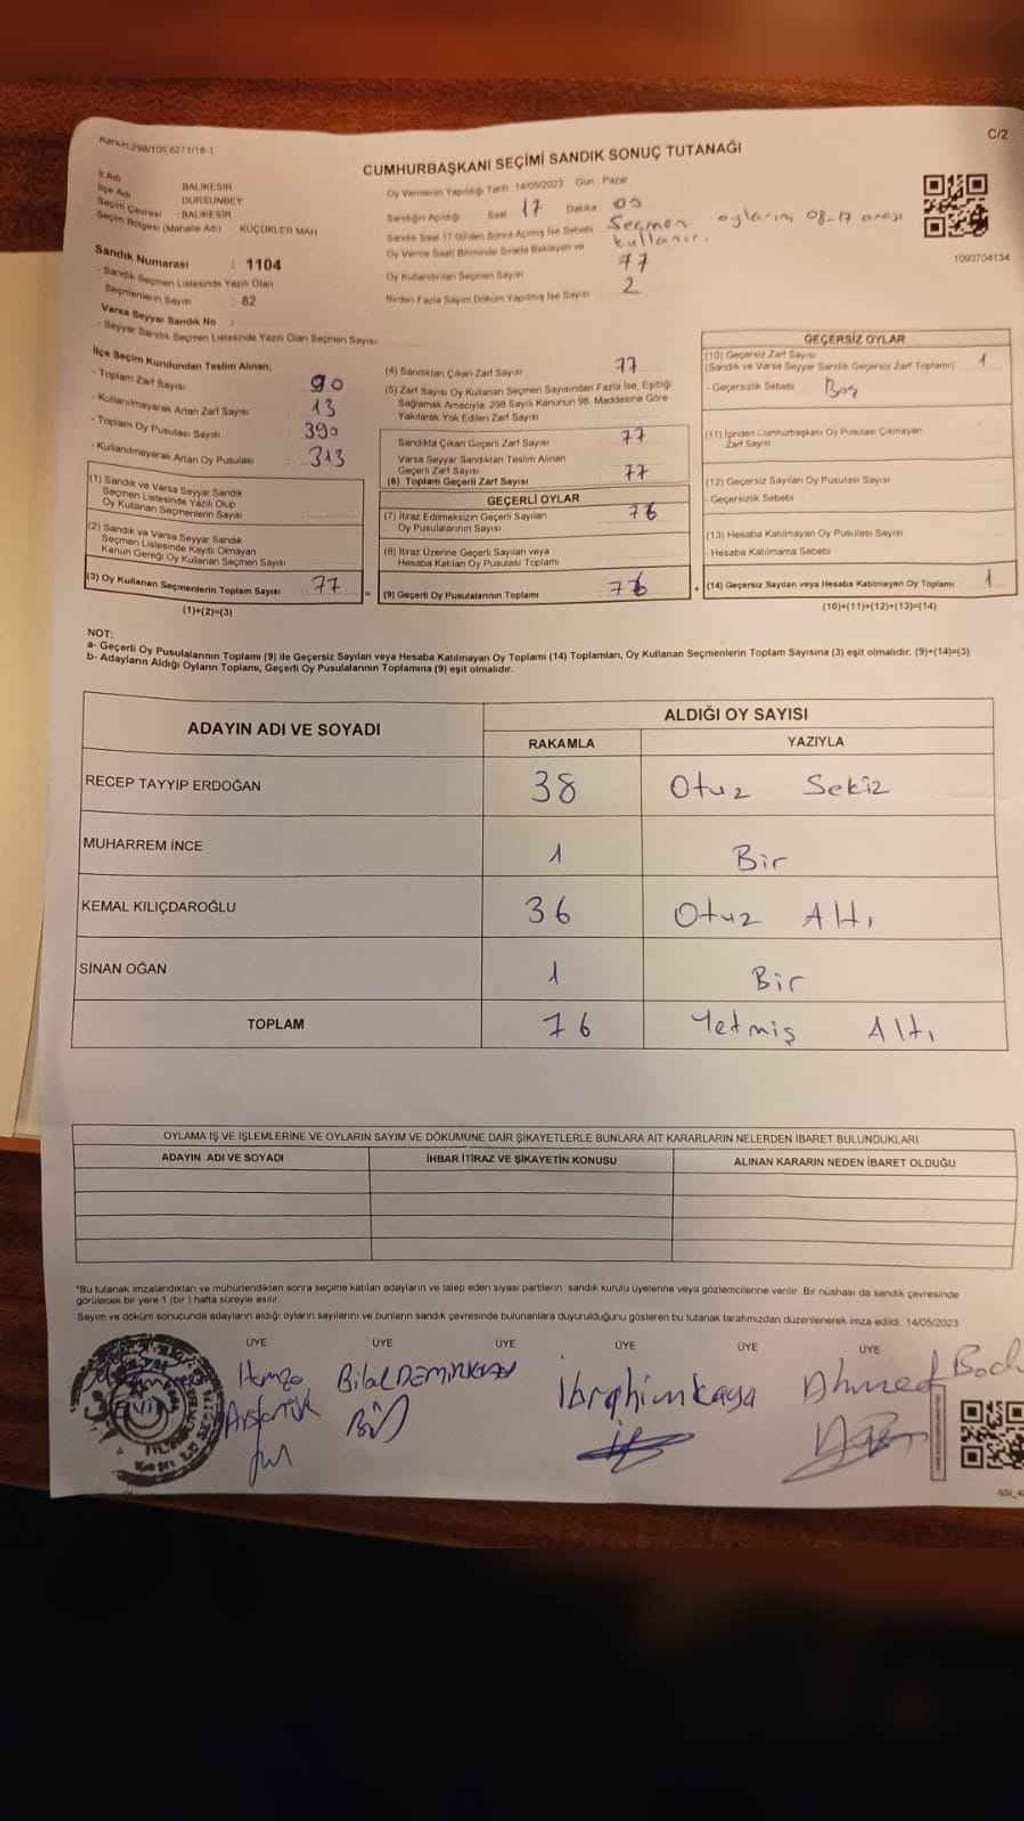 C/2
CUMHURBAŞKANI SEÇİMİ SANDIK SONUÇ TUTANAĞI
Oy Vermenin Yapıldığı Tarih : 14/05/2023 Gün : Pazar
İl Adı : BALIKESİR
İlçe Adı : DURSUNBEY
Seçim Çevresi : BALIKESİR
Seçim Bölgesi (Mahalle Adı) : KÜÇÜKLER MAH
Sandığın Açılışı Saat 17 Dakika 05
Seçmen oylarını 08-17 arası
kullanır.
Oy Kullandırılan Seçmen Sayısı 77
Birden Fazla Sayım Döküm Yapılmış İse Sayısı 2
1093704134
Sandık Numarası : 1104
- Sandık Seçmen Listesinde Yazılı Olan
Seçmenlerin Sayısı : 82
Varsa Seyyar Sandık No :
- Seyyar Sandık Seçmen Listesinde Yazılı Olan Seçmen Sayısı
İlçe Seçim Kurulundan Teslim Alınan;
- Toplam Zarf Sayısı 90
- Kullanılmayarak Artan Zarf Sayısı 13
- Toplam Oy Pusulası Sayısı 390
- Kullanılmayarak Artan Oy Pusulası 313
(1) Sandık ve Varsa Seyyar Sandık
Seçmen Listesinde Yazılı Olup
Oy Kullanan Seçmenlerin Sayısı
(2) Sandık ve Varsa Seyyar Sandık
Seçmen Listesinde Kayıtlı Olmayan
Kanun Gereği Oy Kullanan Seçmen Sayısı
(3) Oy Kullanan Seçmenlerin Toplam Sayısı 77
(1)+(2)=(3)
(4) Sandıktan Çıkan Zarf Sayısı 77
(5) Zarf Sayısı Oy Kullanan Seçmen Sayısından Fazla İse, Eşitliği
Sağlamak Amacıyla 298 Sayılı Kanunun 98. Maddesine Göre
Yakılarak Yok Edilen Zarf Sayısı
Sandıkta Çıkan Geçerli Zarf Sayısı 77
Varsa Seyyar Sandıktan Teslim Alınan
Geçerli Zarf Sayısı
(6) Toplam Geçerli Zarf Sayısı 77
GEÇERLİ OYLAR
(7) İtiraz Edilmeksizin Geçerli Sayılan
Oy Pusulalarının Sayısı 76
(8) İtiraz Üzerine Geçerli Sayılan veya
Hesaba Katılan Oy Pusulası Toplamı
(9) Geçerli Oy Pusulalarının Toplamı 76
GEÇERSİZ OYLAR
(10) Geçersiz Zarf Sayısı 1
(Sandık ve Varsa Seyyar Sandık Geçersiz Zarf Toplamı)
- Geçersizlik Sebebi Boş
(11) İçinden Cumhurbaşkanı Oy Pusulası Çıkmayan
Zarf Sayısı
(12) Geçersiz Sayılan Oy Pusulası Sayısı
- Geçersizlik Sebebi
(13) Hesaba Katılmayan Oy Pusulası Sayısı
- Hesaba Katılmama Sebebi
(14) Geçersiz Sayılan veya Hesaba Katılmayan Oy Toplamı 1
(10)+(11)+(12)+(13)=(14)
NOT:
a- Geçerli Oy Pusulalarının Toplamı (9) ile Geçersiz Sayılan veya Hesaba Katılmayan Oy Toplamı (14) Toplamları, Oy Kullanan Seçmenlerin Toplam Sayısına (3) eşit olmalıdır. (9)+(14)=(3)
b- Adayların Aldığı Oyların Toplamı, Geçerli Oy Pusulalarının Toplamına (9) eşit olmalıdır.
ADAYIN ADI VE SOYADI
ALDIĞI OY SAYISI
RAKAMLA YAZIYLA
RECEP TAYYİP ERDOĞAN 38 Otuz Sekiz
MUHARREM İNCE 1 Bir
KEMAL KILIÇDAROĞLU 36 Otuz Altı
SİNAN OĞAN 1 Bir
TOPLAM 76 Yetmiş Altı
OYLAMA İŞ VE İŞLEMLERİNE VE OYLARIN SAYIM VE DÖKÜMÜNE DAİR ŞİKAYETLERLE BUNLARA AİT KARARLARIN NELERDEN İBARET BULUNDUKLARI
ADAYIN ADI VE SOYADI İHBAR İTİRAZ VE ŞİKAYETİN KONUSU ALINAN KARARIN NEDEN İBARET OLDUĞU
*Bu tutanak imzalandıktan ve mühürlendikten sonra seçime katılan adayların ve talep eden siyasi partilerin sandık kurulu üyelerine veya gözlemcilerine verilir. Bir nüshası da sandık çevresinde
görülecek bir yere 1 (bir) hafta süreyle asılır.
Sayım ve döküm sonucunda adayların aldığı oyların sayılarını ve bunların sandık çevresinde bulunanlara duyurulduğunu gösteren bu tutanak tarafımızdan düzenlenerek imza edildi. 14/05/2023
ÜYE ÜYE ÜYE ÜYE ÜYE ÜYE
Hamza Bilal DEMİRKAN İbrahim kaya Ahmed